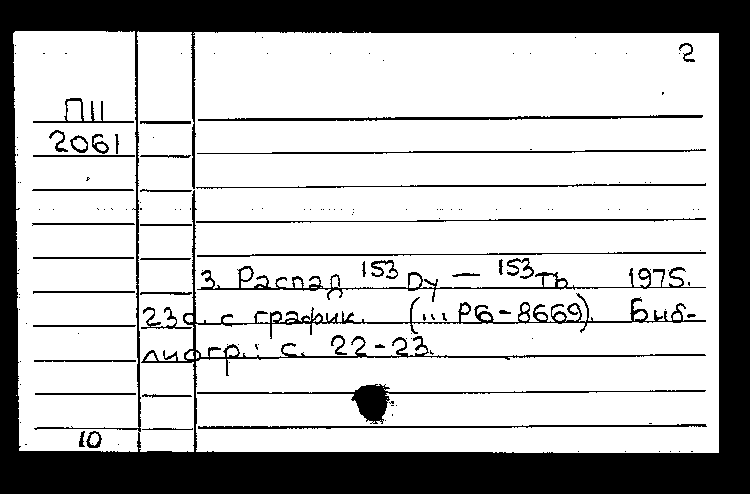 2
П11
2061
3. Распад ¹⁵³Dy — ¹⁵³Tb. 1975.
23с. с график. (...Р6-8669). Биб-
лиогр.: с. 22-23.
10